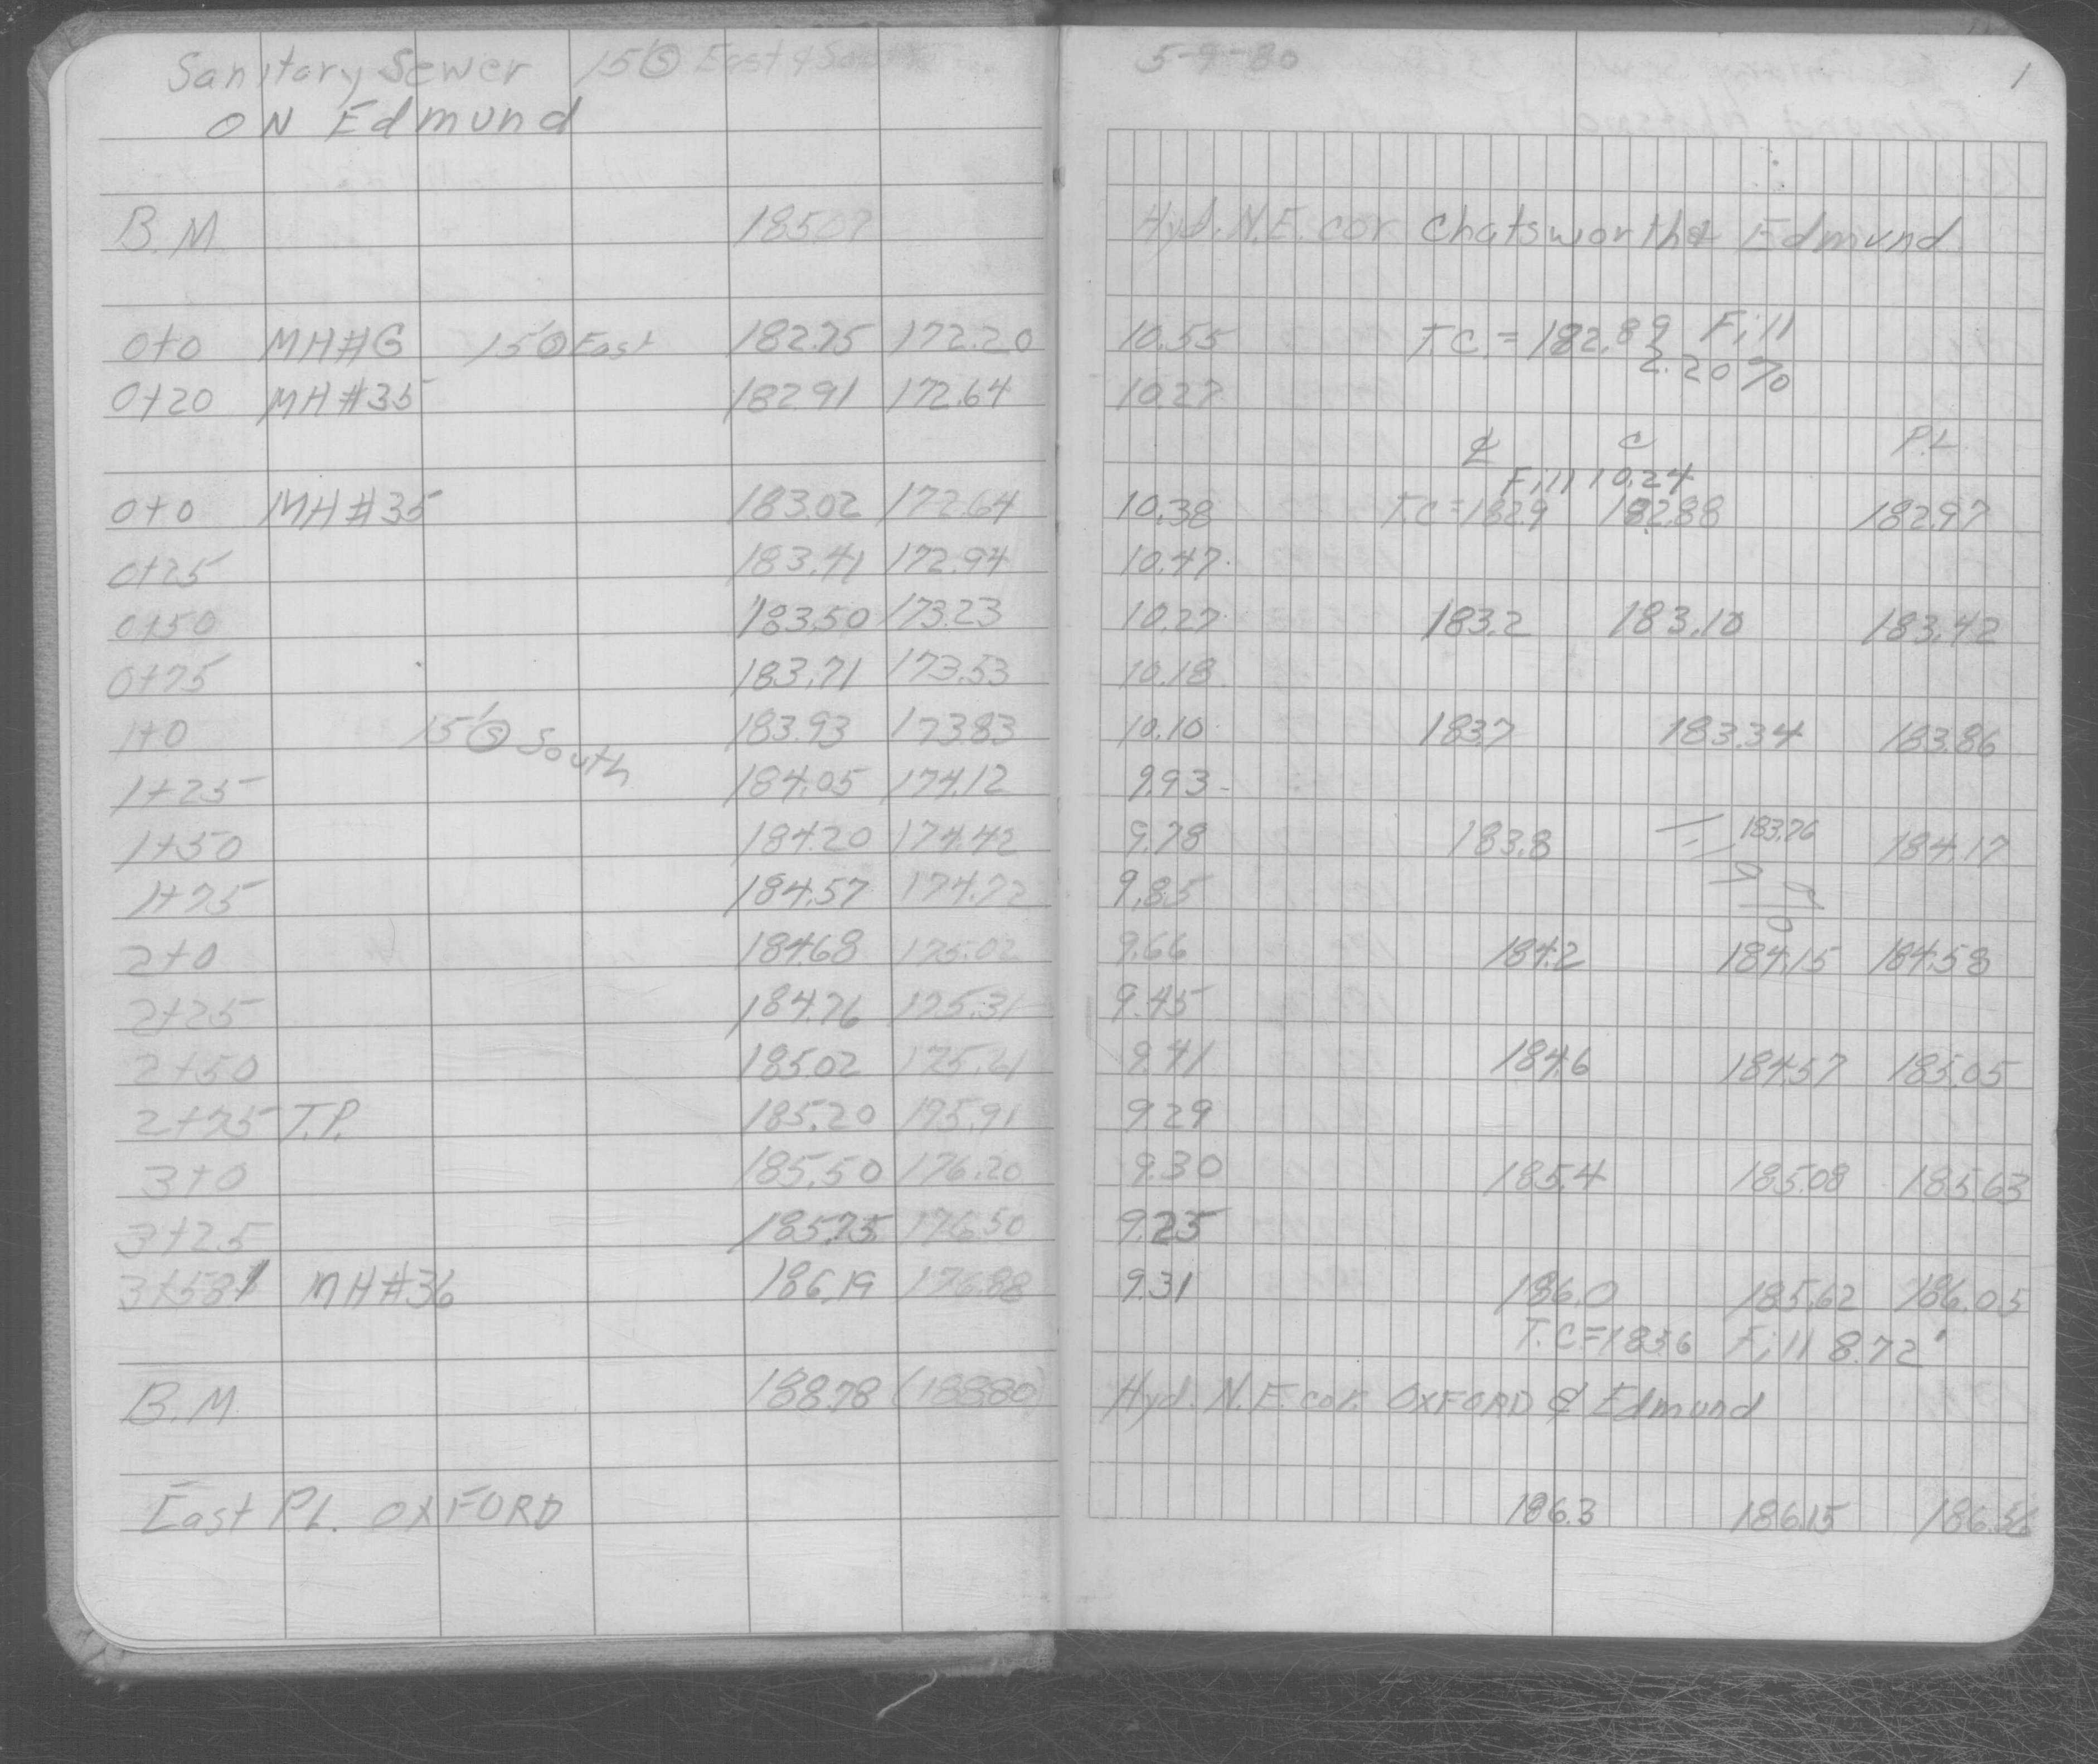 Sanitary Sewer 15' Ⓢ East & South
ON Edmund
B.M 185.07
0+0 MH#G 15' Ⓢ East 182.75 172.20
0+20 MH#35 182.91 172.64
0+0 MH#35 183.02 172.64
0+25 183.41 172.94
0+50 183.50 173.23
0+75 183.71 173.53
1+0 15' Ⓢ South 183.93 173.83
1+25 184.05 174.12
1+50 184.20 174.42
1+75 184.57 174.72
2+0 184.68 175.02
2+25 184.76 175.31
2+50 185.02 175.61
2+75 T.P. 185.20 175.91
3+0 185.50 176.20
3+25 185.75 176.50
3+581 MH#36 186.19 176.88
B.M 188.78 (188.80)
East PL. OXFORD
5-9-80
1
Hyd. N.E. cor Chatsworth & Edmund
10.55 T.C. = 182.89 Fill
2.20%
10.27
℄ C P.L
Fill 10.24
10.38 T.C=182.9 182.88 182.97
10.47
10.27 183.2 183.10 183.42
10.18
10.10 183.7 183.34 183.86
9.93
9.78 183.8 183.76 184.17
9.85
9.66 184.2 184.15 184.58
9.45
9.41 184.6 184.57 185.05
9.29
9.30 185.4 185.08 185.63
9.25
9.31 186.0 185.62 186.05
T.C=183.6 Fill 8.72'
Hyd. N.E. cor. OXFORD & Edmund
186.3 186.15